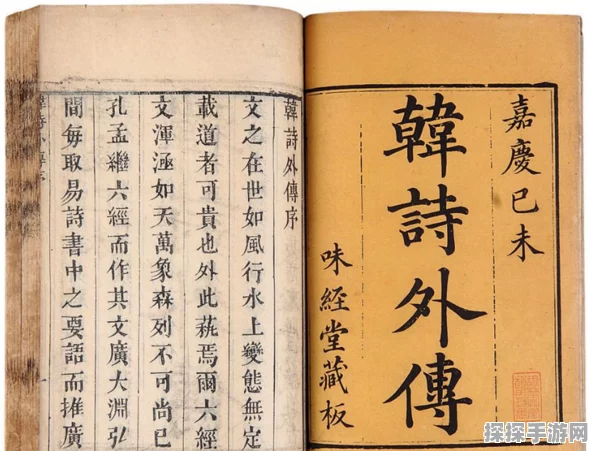 嘉慶已未
韓詩外傳
味經堂藏板
韓詩外傳序
文之在世如風行水上變態無定
載道者可貴也外此蓺焉爾六經
文渾涵如天萬象森列不可尚已
孔孟繼六經而作其文廣大淵弘
間每取易詩書中之要語而推廣
探探手游网